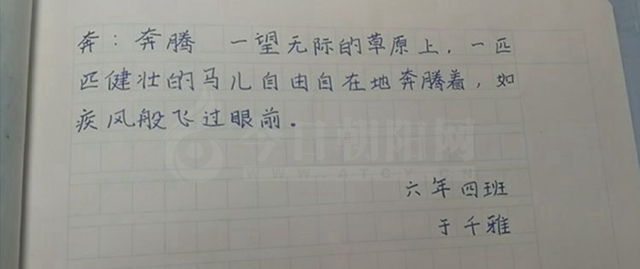 奔：奔腾 一望无际的草原上，一匹
匹健壮的马儿自由自在地奔腾着，如
疾风般飞过眼前.
今日朝阳网
六年四班
于千雅